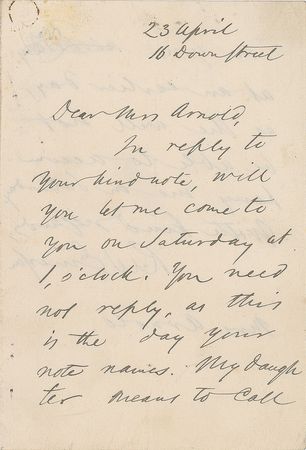 23 April
16 Down Street
Dear Mrs Arnold,
In reply to
your kind note, will
you let me come to
you on Saturday at
1, o'clock. You need
not reply, as this
is the day your
note names. My Daugh
ter means to call